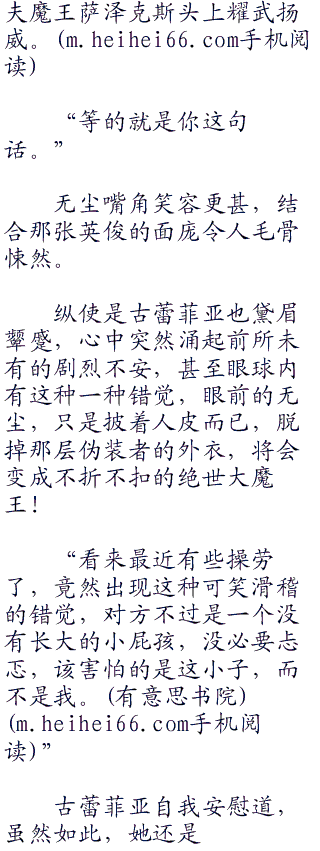 夫魔王萨泽克斯头上耀武扬
威。(m.heihei66.com手机阅
读)
“等的就是你这句
话。”
无尘嘴角笑容更甚，结
合那张英俊的面庞令人毛骨
悚然。
纵使是古蕾菲亚也黛眉
颦蹙，心中突然涌起前所未
有的剧烈不安，甚至眼球内
有这种一种错觉，眼前的无
尘，只是披着人皮而已，脱
掉那层伪装者的外衣，将会
变成不折不扣的绝世大魔
王！
“看来最近有些操劳
了，竟然出现这种可笑滑稽
的错觉，对方不过是一个没
有长大的小屁孩，没必要忐
忑，该害怕的是这小子，而
不是我。(有意思书院)
(m.heihei66.com手机阅
读)”
古蕾菲亚自我安慰道，
虽然如此，她还是